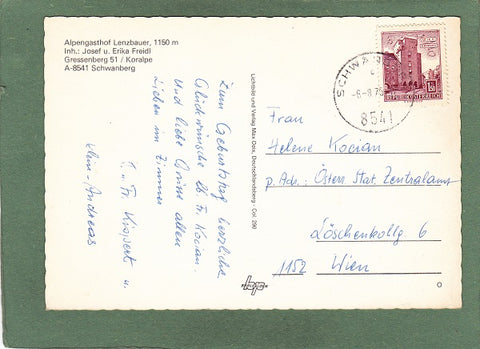 Alpengasthof Lenzbauer, 1150 m
Inh.: Josef u. Erika Freidl
Gressenberg 51 / Koralpe
A-8541 Schwanberg
Zum Geburtstag herzliche
Glückwünsche lb. Fr. Kocian.
Und liebe Grüße allen
Lieben im Zimmer
u.
Andreas
Lichtbild und Verlag Max Deix, Deutschlandsberg - ÖK 290
SCHWAN
-6-8.75
8541
REPUBLIK ÖSTERREICH
Frau
Helene Kocian
p. Adr.: Österr. Stat. Zentralamt
Löschenkollg 6
1152 Wien